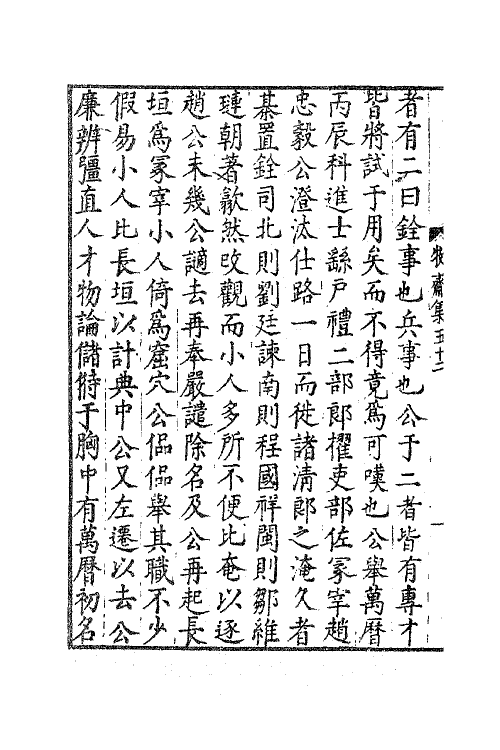 牧齋集五十二
者有二曰銓事也兵事也公于二者皆有專才
皆將試于用矣而不得竟爲可嘆也公舉萬曆
丙辰科進士繇戸禮二部郎擢吏部佐冢宰趙
忠毅公澄汰仕路一日而徙諸清郎之淹久者
綦置銓司北則劉廷諫南則程國祥閩則鄒維
璉朝著歙然改觀而小人多所不便比奄以逐
趙公未幾公謫去再奉嚴譴除名及公再起長
垣爲冢宰小人倚爲窟穴公偘偘舉其職不少
假易小人比長垣以計典中公又左遷以去公
廉辨彊直人才物論儲偫于胸中有萬曆初名